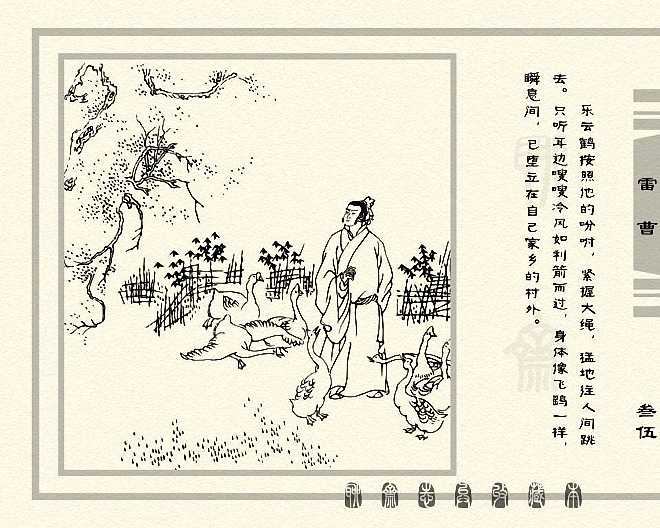 乐云鹤按照他的吩咐，紧握大绳，猛地往人间跳
去。只听耳边嗖嗖冷风如利箭而过，身体像飞鹞一样，
瞬息间，已堕立在自己家乡的村外。
雷曹
叁伍